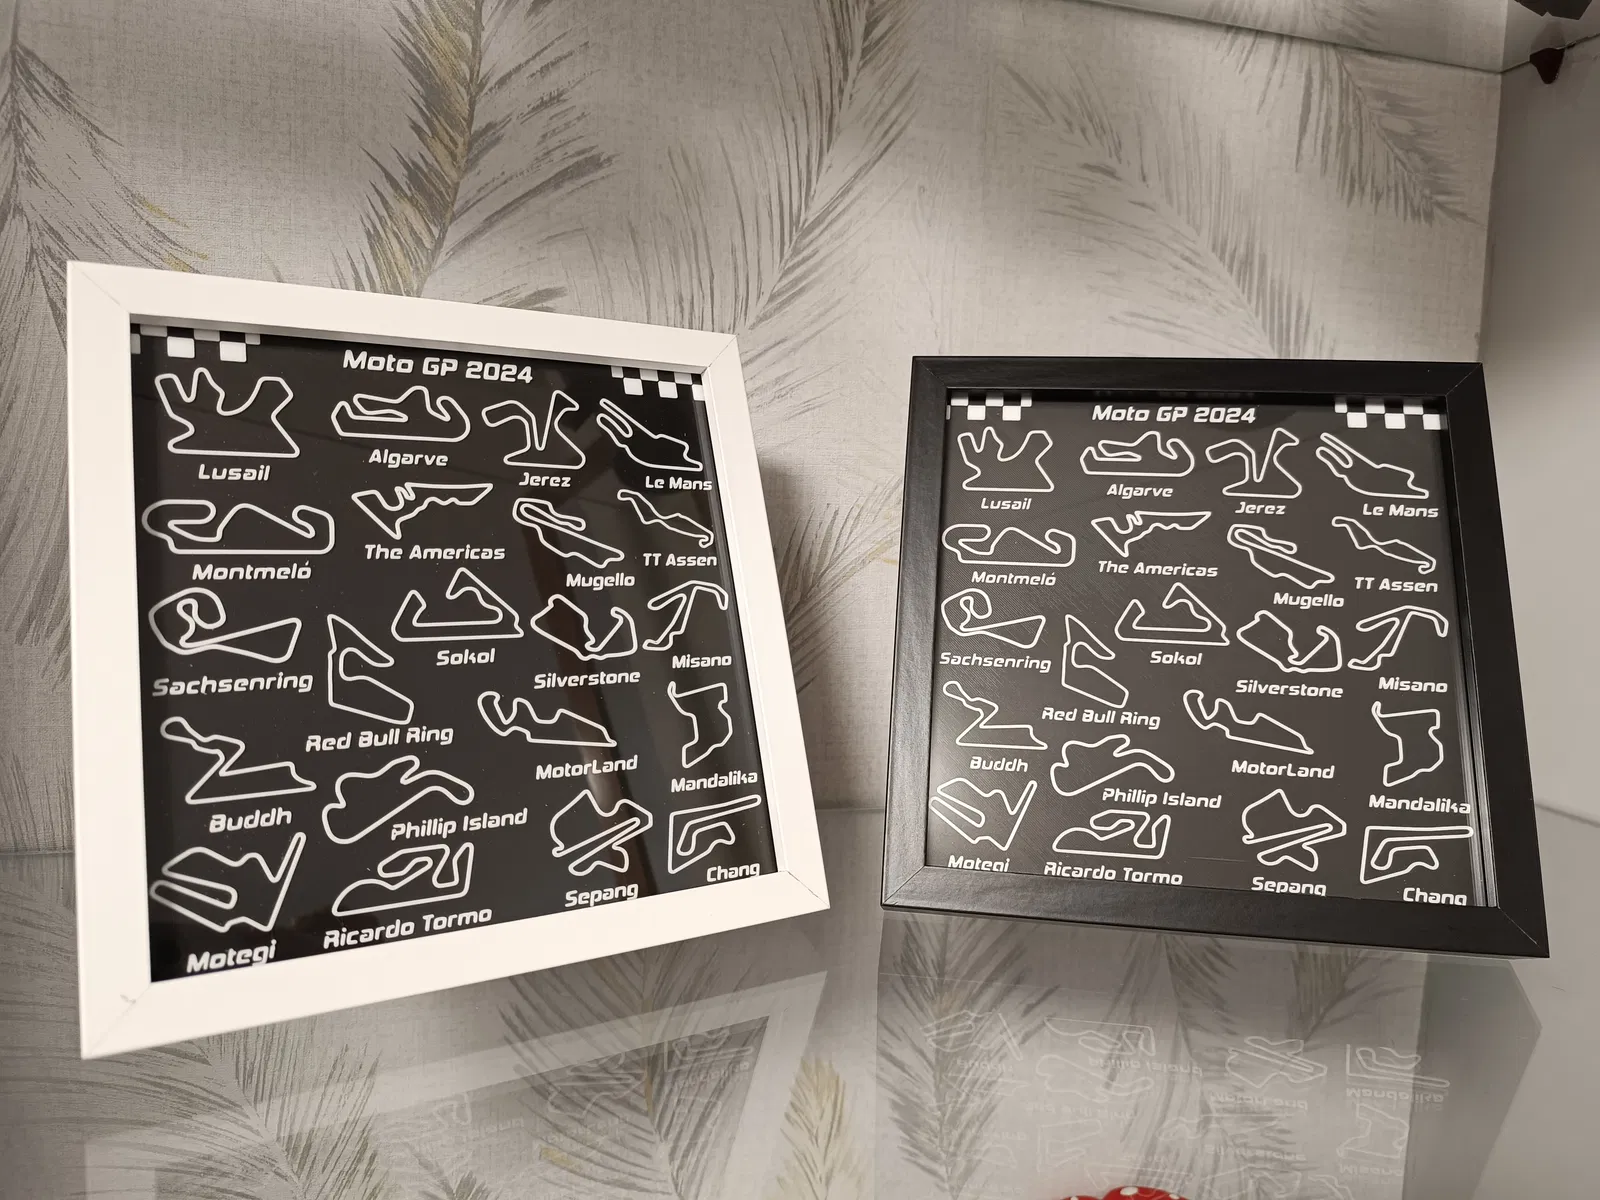 Moto GP 2024
Lusail
Algarve
Jerez
Le Mans
Montmeló
The Americas
Mugello
TT Assen
Sachsenring
Sokol
Silverstone
Misano
Red Bull Ring
MotorLand
Mandalika
Buddh
Phillip Island
Sepang
Chang
Motegi
Ricardo Tormo
Moto GP 2024
Lusail
Algarve
Jerez
Le Mans
Montmeló
The Americas
Mugello
TT Assen
Sachsenring
Sokol
Silverstone
Misano
Red Bull Ring
MotorLand
Mandalika
Buddh
Phillip Island
Motegi
Ricardo Tormo
Sepang
Chang